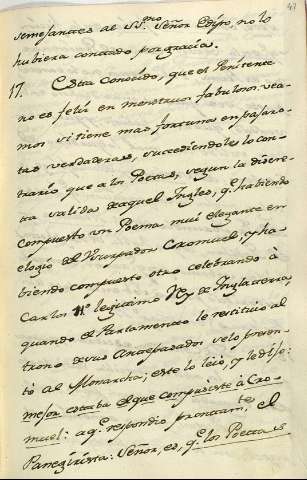 47
semejantes al SS.mo Señor Edipo, no lo
hubiera contado por gracia.
17. Esta conocido, que el Penitente
no es felíz en monstruos fabulosos, vea-
mos si tiene mas fortuna en pajaro-
tas verdaderas, sucediendole lo con-
trario que a los Poetas, segun la discre-
ta salida de aquel Ingles, q.e habiendo
compuesto un Poema mui elegante en
elogio del Vsurpador Cromuel, y ha-
biendo compuesto otro celebrando à
Carlos II.o legitimo Rey de Inglaterra,
quando el Parlamento le restituio al
trono de sus Antepasados se lo presen-
tò al Monarcha; este lo leiò, y le dijo:
mejor estaba el que compusiste à Cro-
muel: a q.e respondio prontam.te el
Panegirista: Señor, es, q.e los Poetas